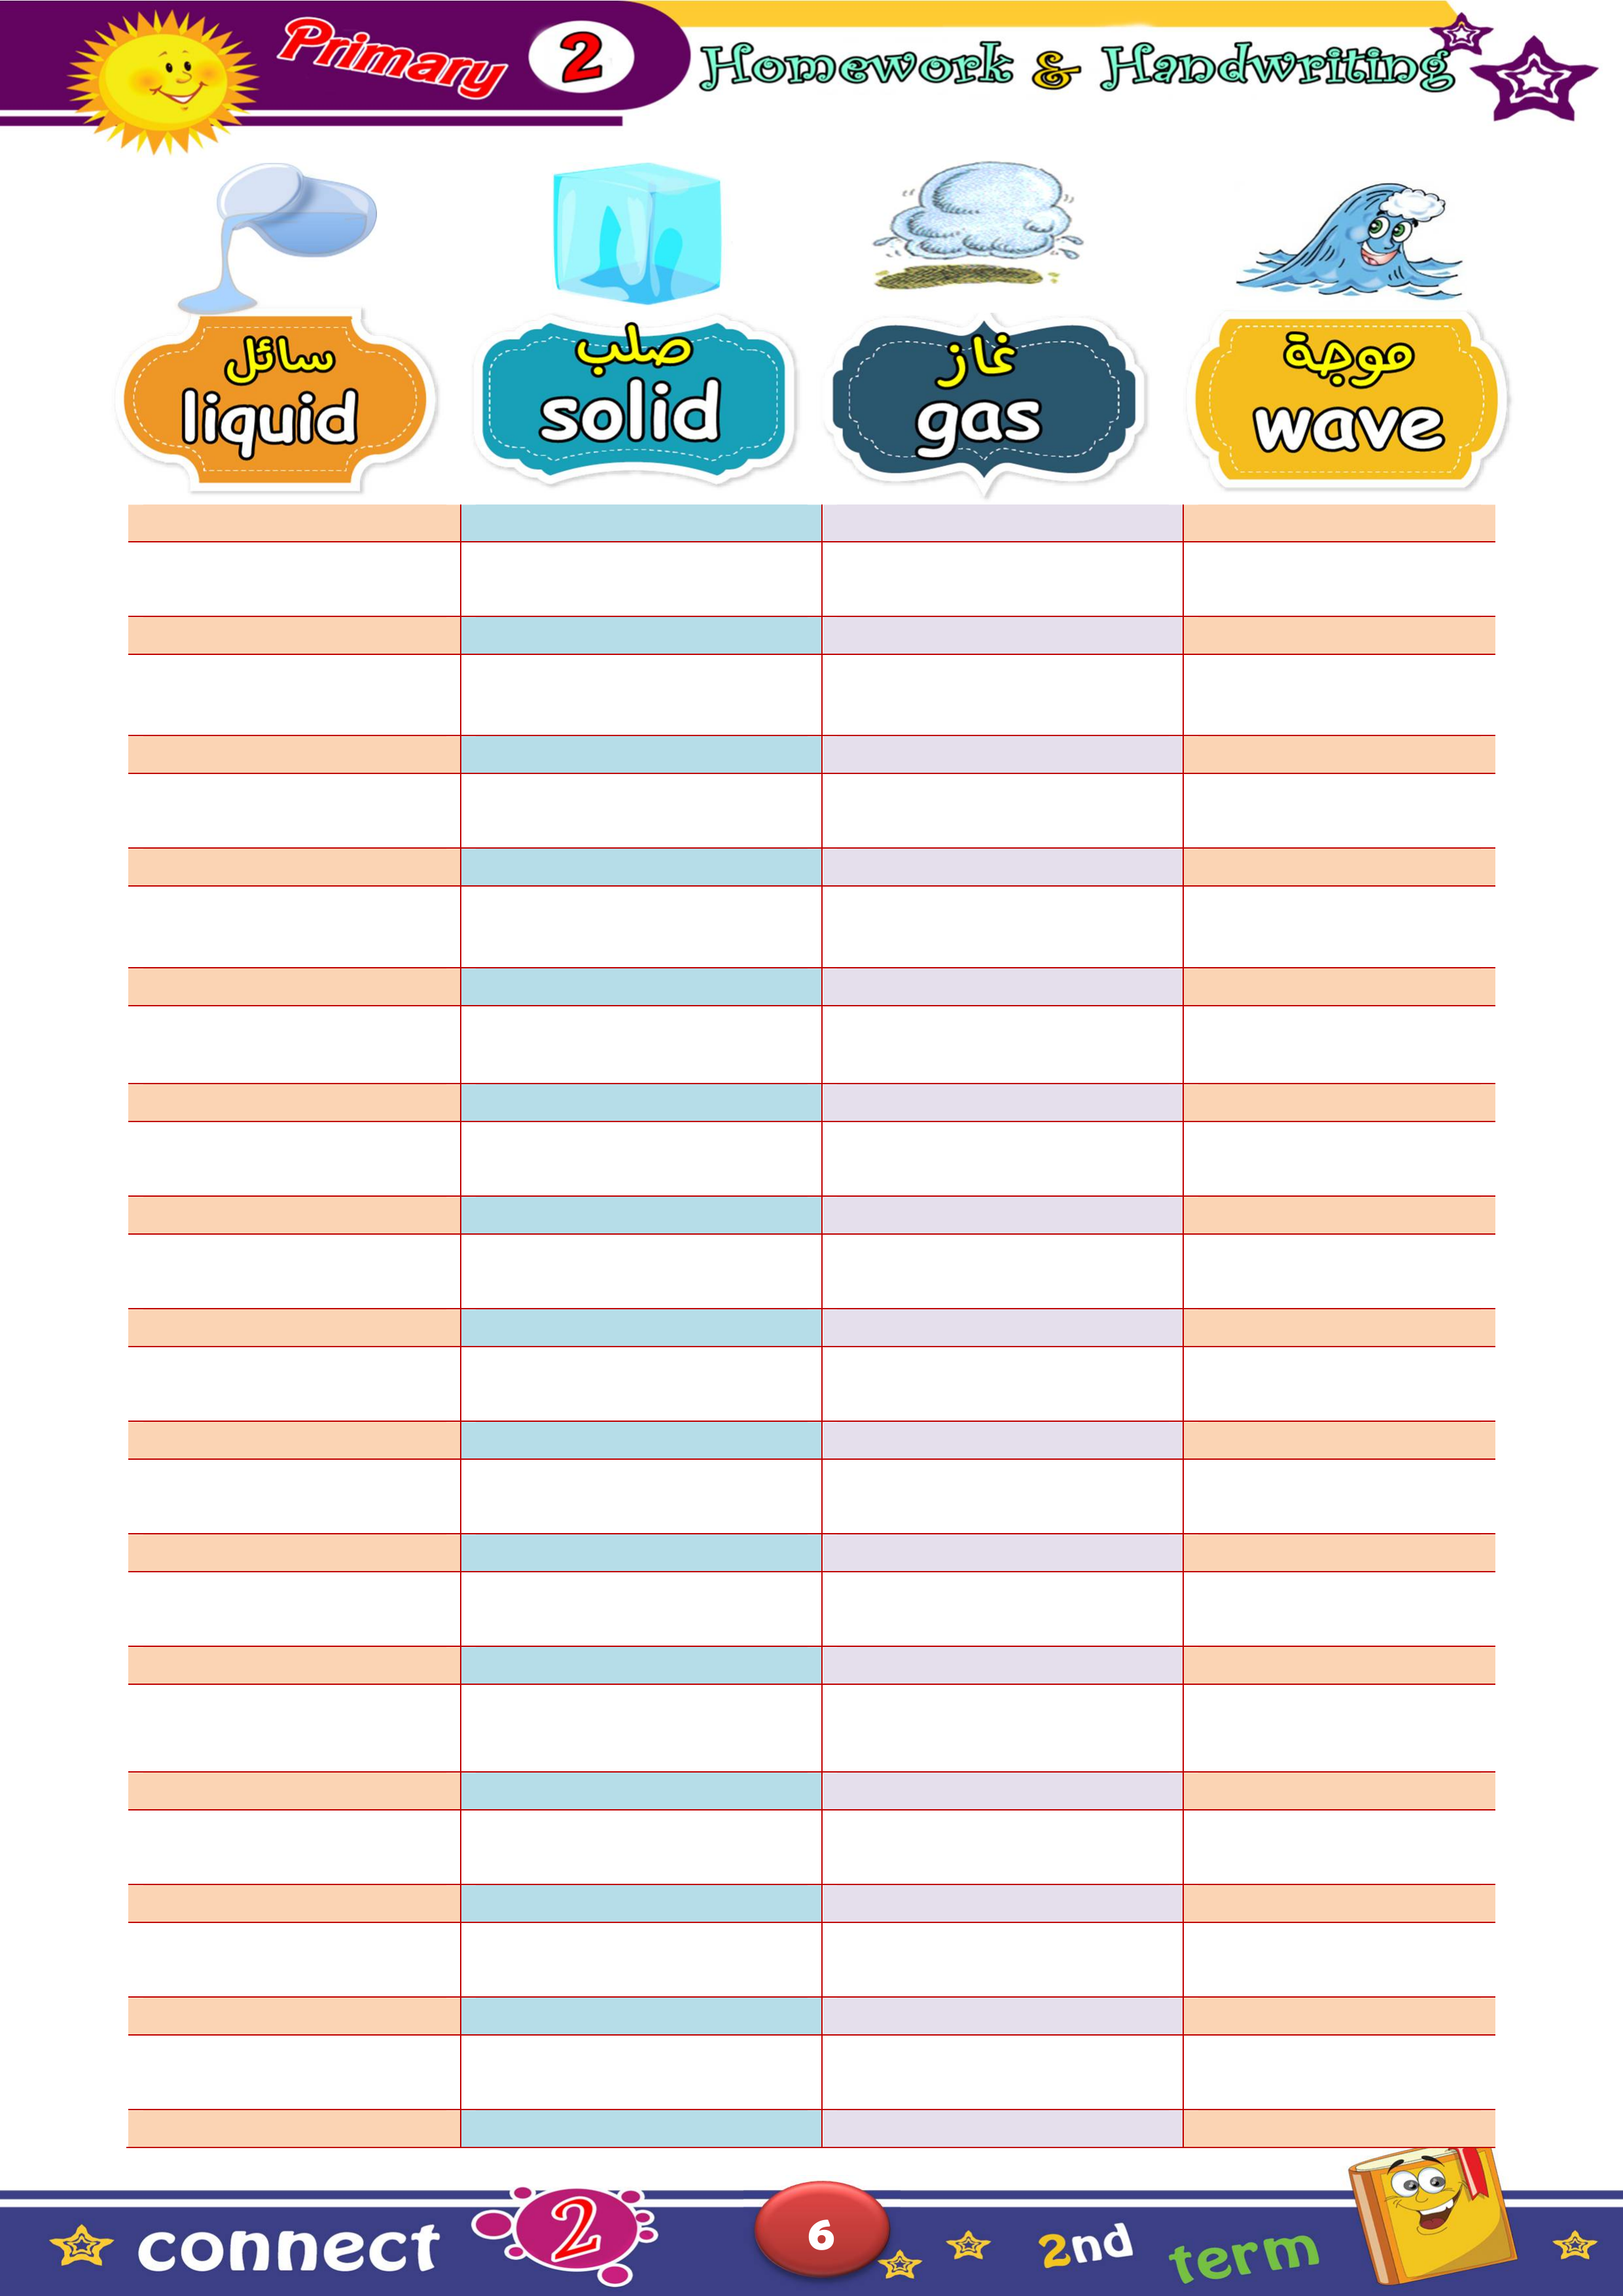 Primary 2 Homework & Handwriting
سائل
liquid
صلب
solid
غاز
gas
موجة
wave
connect 2 6 2nd term